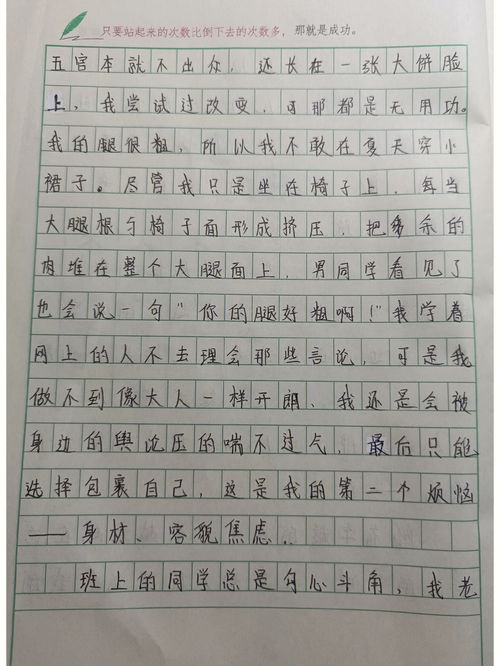 只要站起来的次数比倒下去的次数多，那就是成功。
五官本就不出众，还长在一张大饼脸
上，我尝试过改变，可那都是无用功。
我的腿很粗，所以我不敢在夏天穿小
裙子。尽管我只是坐在椅子上，每当
大腿根与椅子面形成挤压，把多余的
肉堆在整个大腿面上，男同学看见了
也会说一句“你的腿好粗啊！”我学着
网上的人不去理会那些言论，可是我
做不到像大人一样开朗、我还是会被
身边的舆论压的喘不过气，最后只能
选择包裹自己，这是我的第二个烦恼
——身材、容貌焦虑..
班上的同学总是勾心斗角，我老